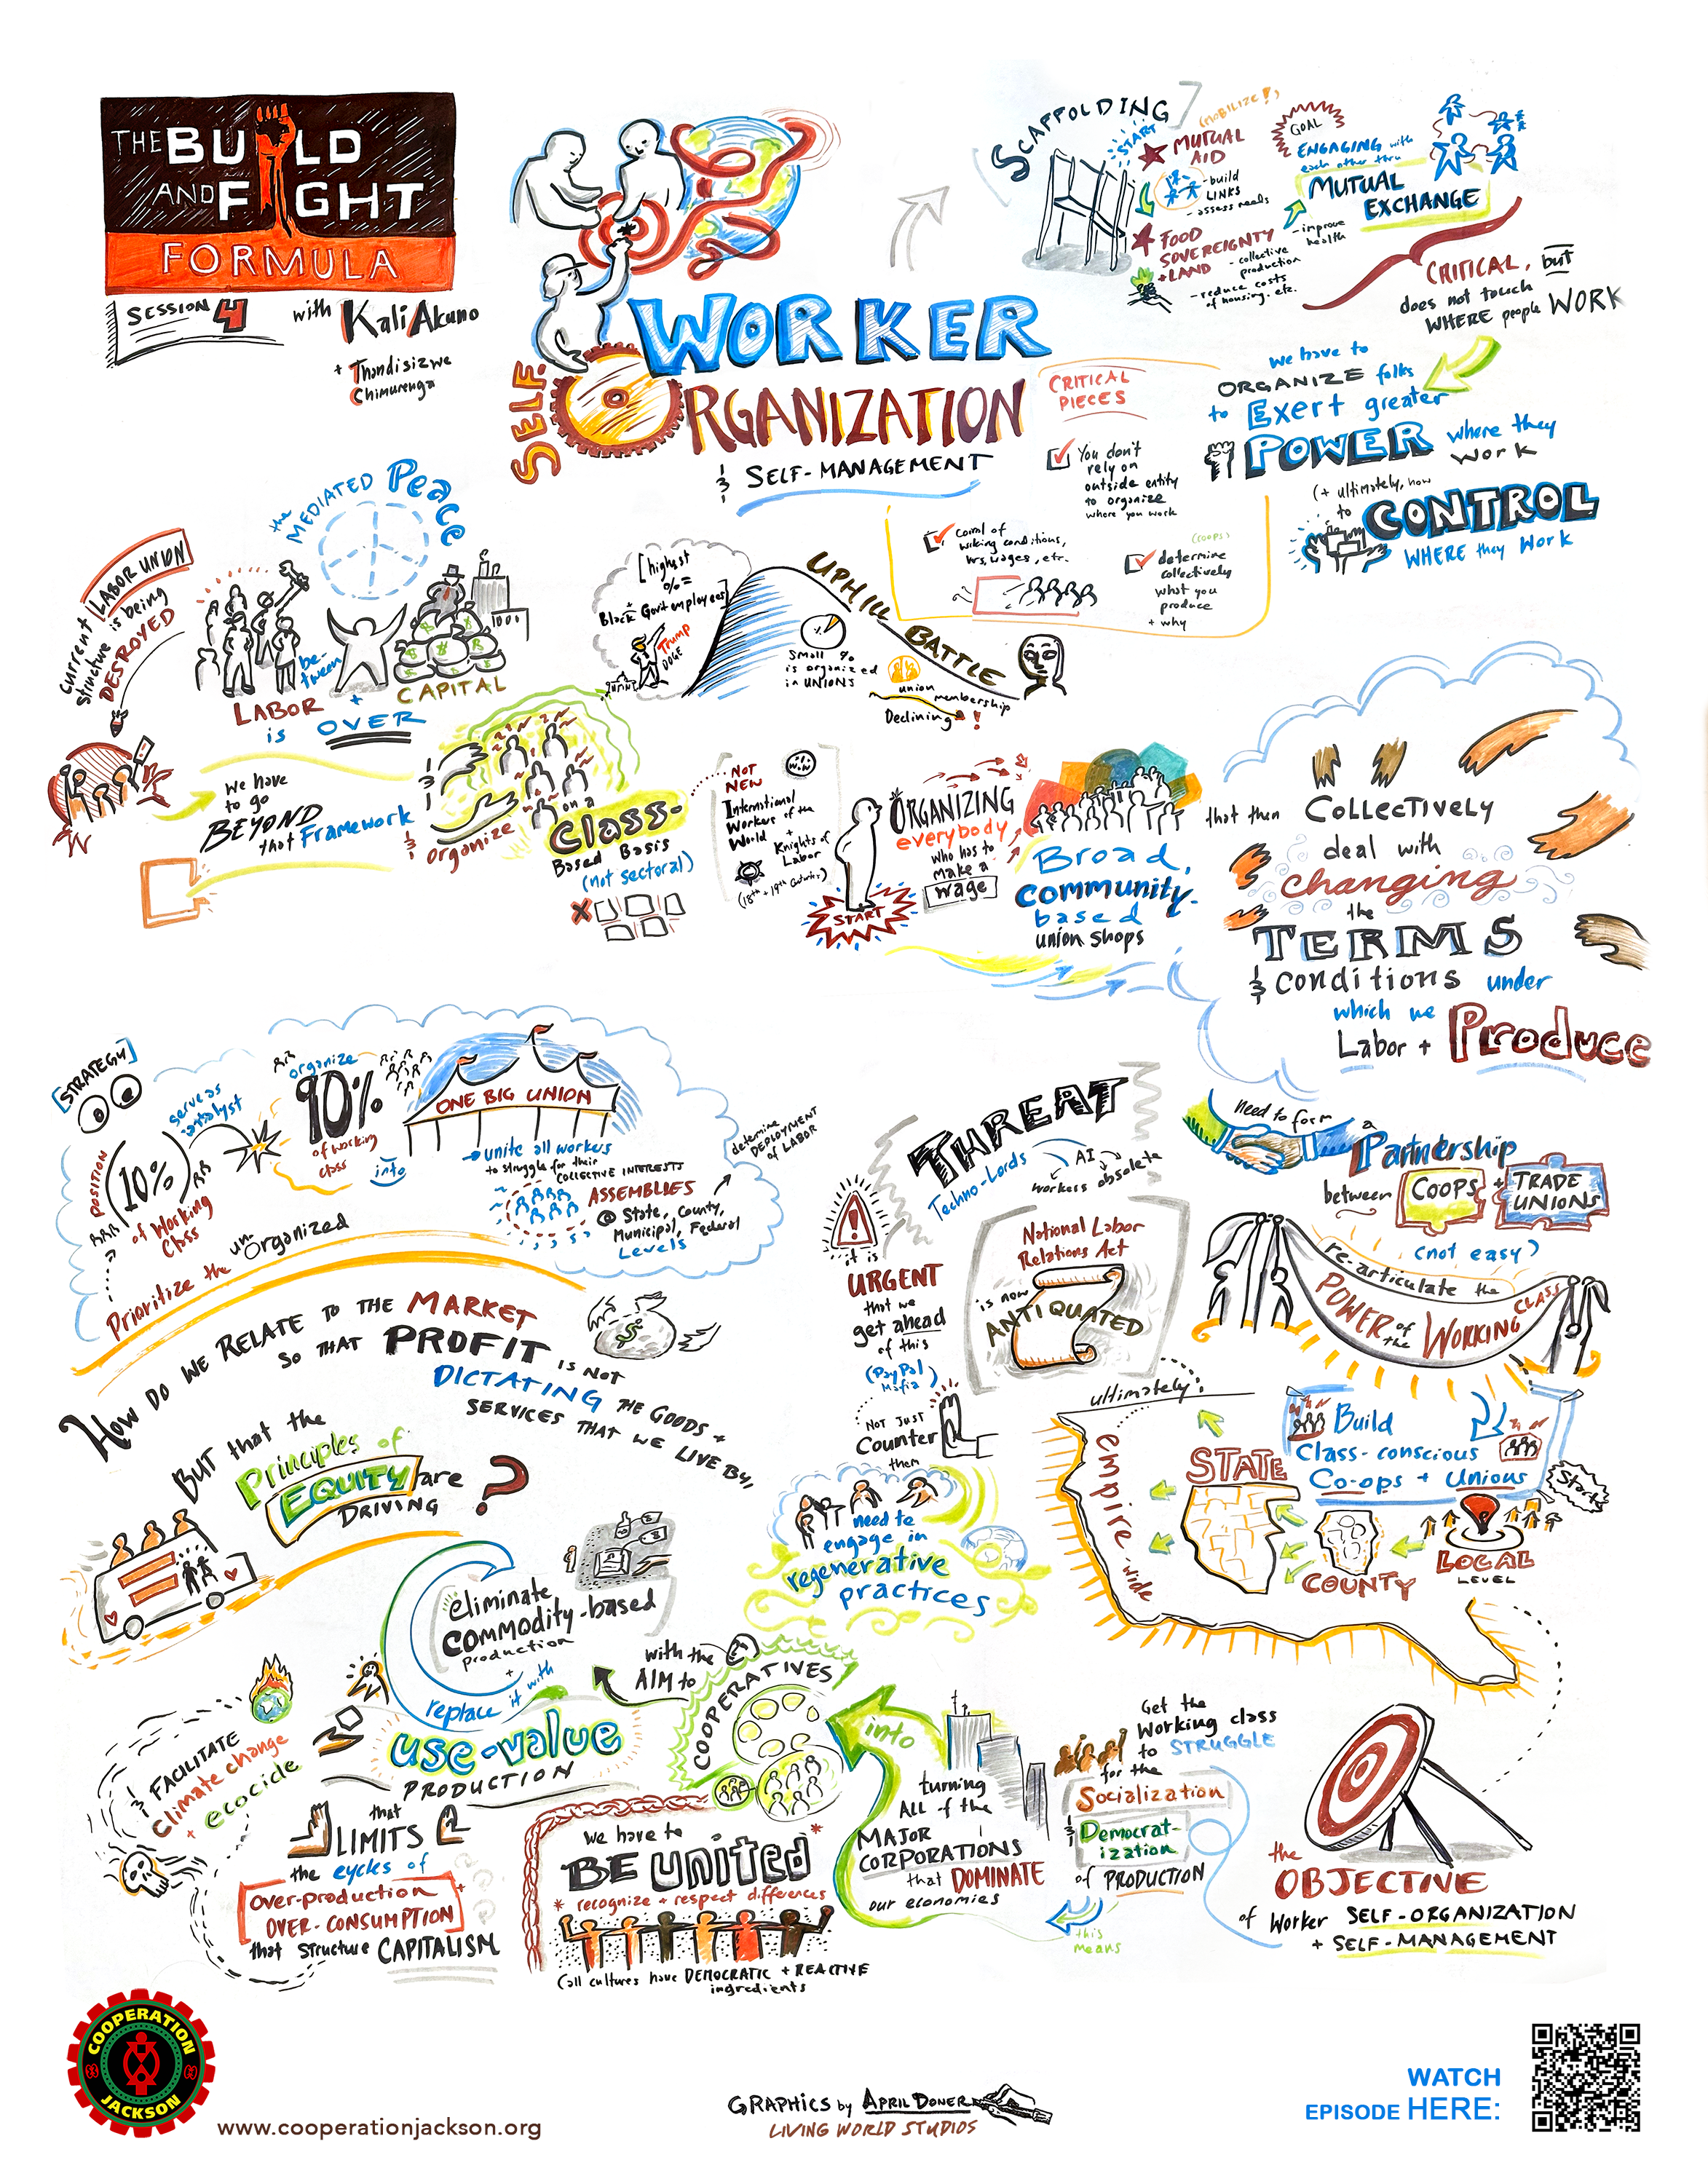 THE BUILD
AND FIGHT
FORMULA
SESSION 4
with Kali Akuno
+ Thandisizwe
Chimurenga
WORKER
SELF-
ORGANIZATION
& SELF-MANAGEMENT
SCAFFOLDING
START
(MOBILIZE!)
MUTUAL
AID
- build
LINKS
- assess needs
FOOD
SOVEREIGNTY
+ LAND
- collective
production
- reduce costs
of housing, etc.
- improve
health
GOAL
ENGAGING with
each other thru
MUTUAL
EXCHANGE
CRITICAL, but
does not touch
WHERE people WORK
we have to
ORGANIZE folks
to Exert greater
POWER where they
work
(+ ultimately, how
to
CONTROL
WHERE they Work
CRITICAL
PIECES
You don't
rely on
outside entity
to organize
where you work
control of
wrking conditions,
hrs, wages, etc.
(coops)
determine
collectively
what you
produce
+ why
the MEDIATED Peace
between
LABOR + CAPITAL
is OVER
Current LABOR UNION
structure is being
DESTROYED
we have
to go
BEYOND
that Framework
& organize
on a
Class-
Based Basis
(not sectoral)
[highest
% =
Black + Gov't employees]
Trump
DOGE
UPHILL BATTLE
small %
is organized
in UNIONS
union
membership
Declining!
NOT
NEW
International
Workers of the
World
+
Knights of
Labor
(18th + 19th Centuries)
START
ORGANIZING
everybody
who has to
make a
wage
Broad,
community-
based
union shops
that then Collectively
deal with
changing
the
TERMS
& conditions under
which we
Labor + Produce
[STRATEGY]
POSITION
(10%)
of Working
Class
serve as
catalyst
organize
90%
of working
class
into
ONE BIG UNION
unite all workers
to struggle for their
COLLECTIVE INTERESTS
ASSEMBLIES
@ State, County,
Municipal, Federal
Levels
determine
DEPLOYMENT
of LABOR
Prioritize the un-organized
HOW DO WE RELATE TO THE MARKET
SO THAT PROFIT IS NOT
DICTATING THE GOODS +
SERVICES THAT WE LIVE BY,
BUT that the
Principles of
EQUITY are
DRIVING ?
THREAT
Techno-Lords
AI
workers obsolete
it is
URGENT
that we
get ahead
of this
(PayPal
Mafia)
National Labor
Relations Act
is now
ANTIQUATED
NOT JUST
Counter
them
need to
engage in
regenerative
practices
need to form a
Partnership
between COOPS + TRADE
UNIONS
(not easy)
re-articulate the
POWER of the WORKING CLASS
ultimately:
empire-wide
Build
Class-conscious
Co-ops + Unions
Start
STATE
COUNTY
LOCAL
LEVEL
the
OBJECTIVE
of Worker SELF-ORGANIZATION
+ SELF-MANAGEMENT
Get the
working class
to STRUGGLE
for the
Socialization
& Democrat-
ization
of PRODUCTION
this
means
turning
ALL of the
MAJOR
CORPORATIONS
that DOMINATE
our economies
into
COOPERATIVES
with the
AIM to
eliminate
commodity-based
production
+
replace it with
use-value
PRODUCTION
that
LIMITS
the cycles of
over-production +
OVER-CONSUMPTION
that structure CAPITALISM
& FACILITATE
climate change
+ ecocide
we have to
BE united*
* recognize + respect differences
(all cultures have DEMOCRATIC + REACTIVE
ingredients
COOPERATION
JACKSON
www.cooperationjackson.org
GRAPHICS by APRIL DONER
LIVING WORLD STUDIOS
WATCH
EPISODE HERE: